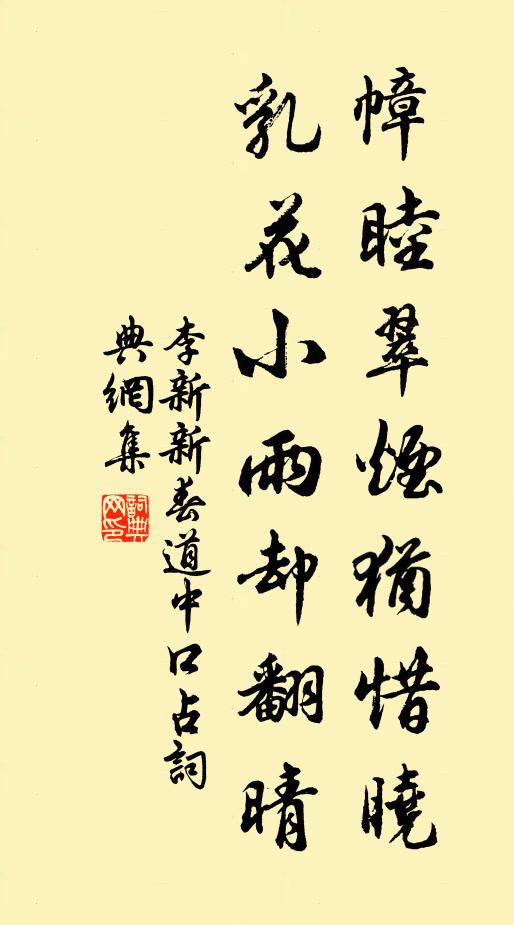 幛睦翠煙猶惜曉
乳花小雨却翻晴
李新新春道中口占詞
典網集
詞典網印